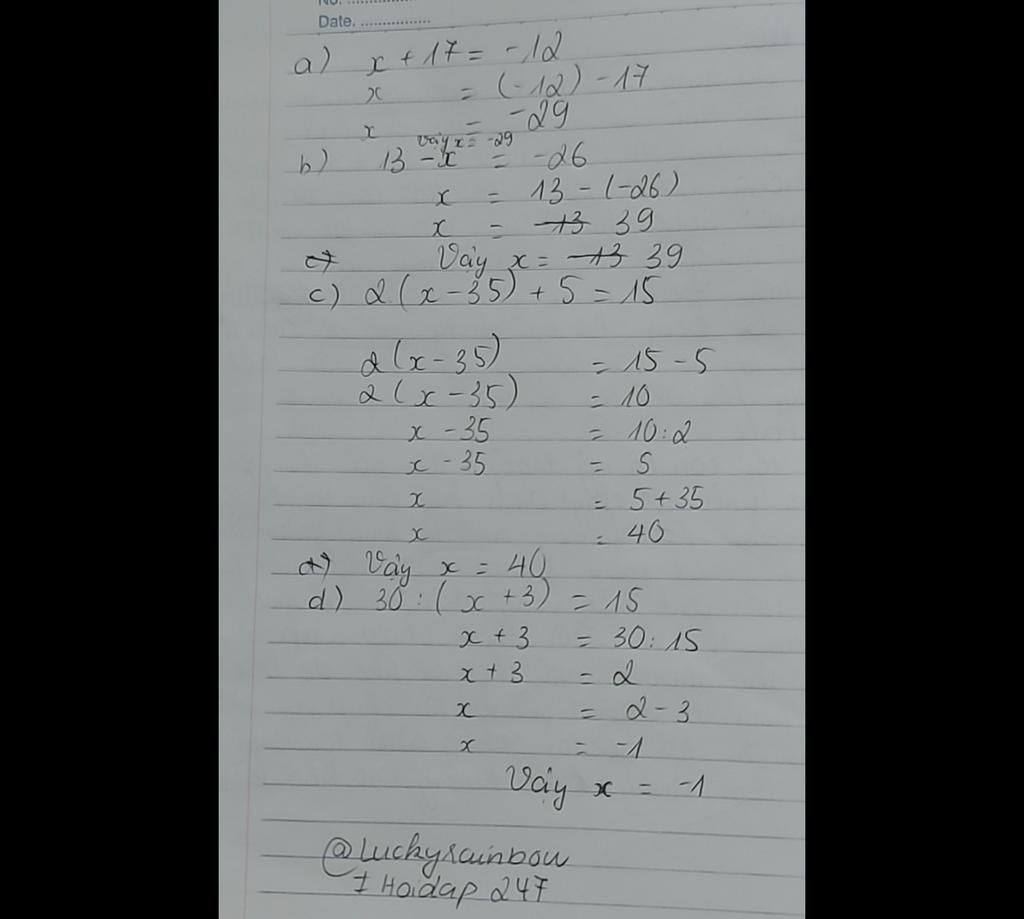 No. ................
Date. ................
a) x + 17 = -12
x = (-12) - 17
x = -29
Vậy x = -29
b) 13 - x = -26
x = 13 - (-26)
x = -13 39
c) Vậy x = -13 39
c) 2(x - 35) + 5 = 15
2(x - 35) = 15 - 5
2(x - 35) = 10
x - 35 = 10:2
x - 35 = 5
x = 5 + 35
x = 40
d) Vậy x = 40
d) 30 : (x + 3) = 15
x + 3 = 30:15
x + 3 = 2
x = 2 - 3
x = -1
Vậy x = -1
@Luckyrainbow
I Hoidap 247